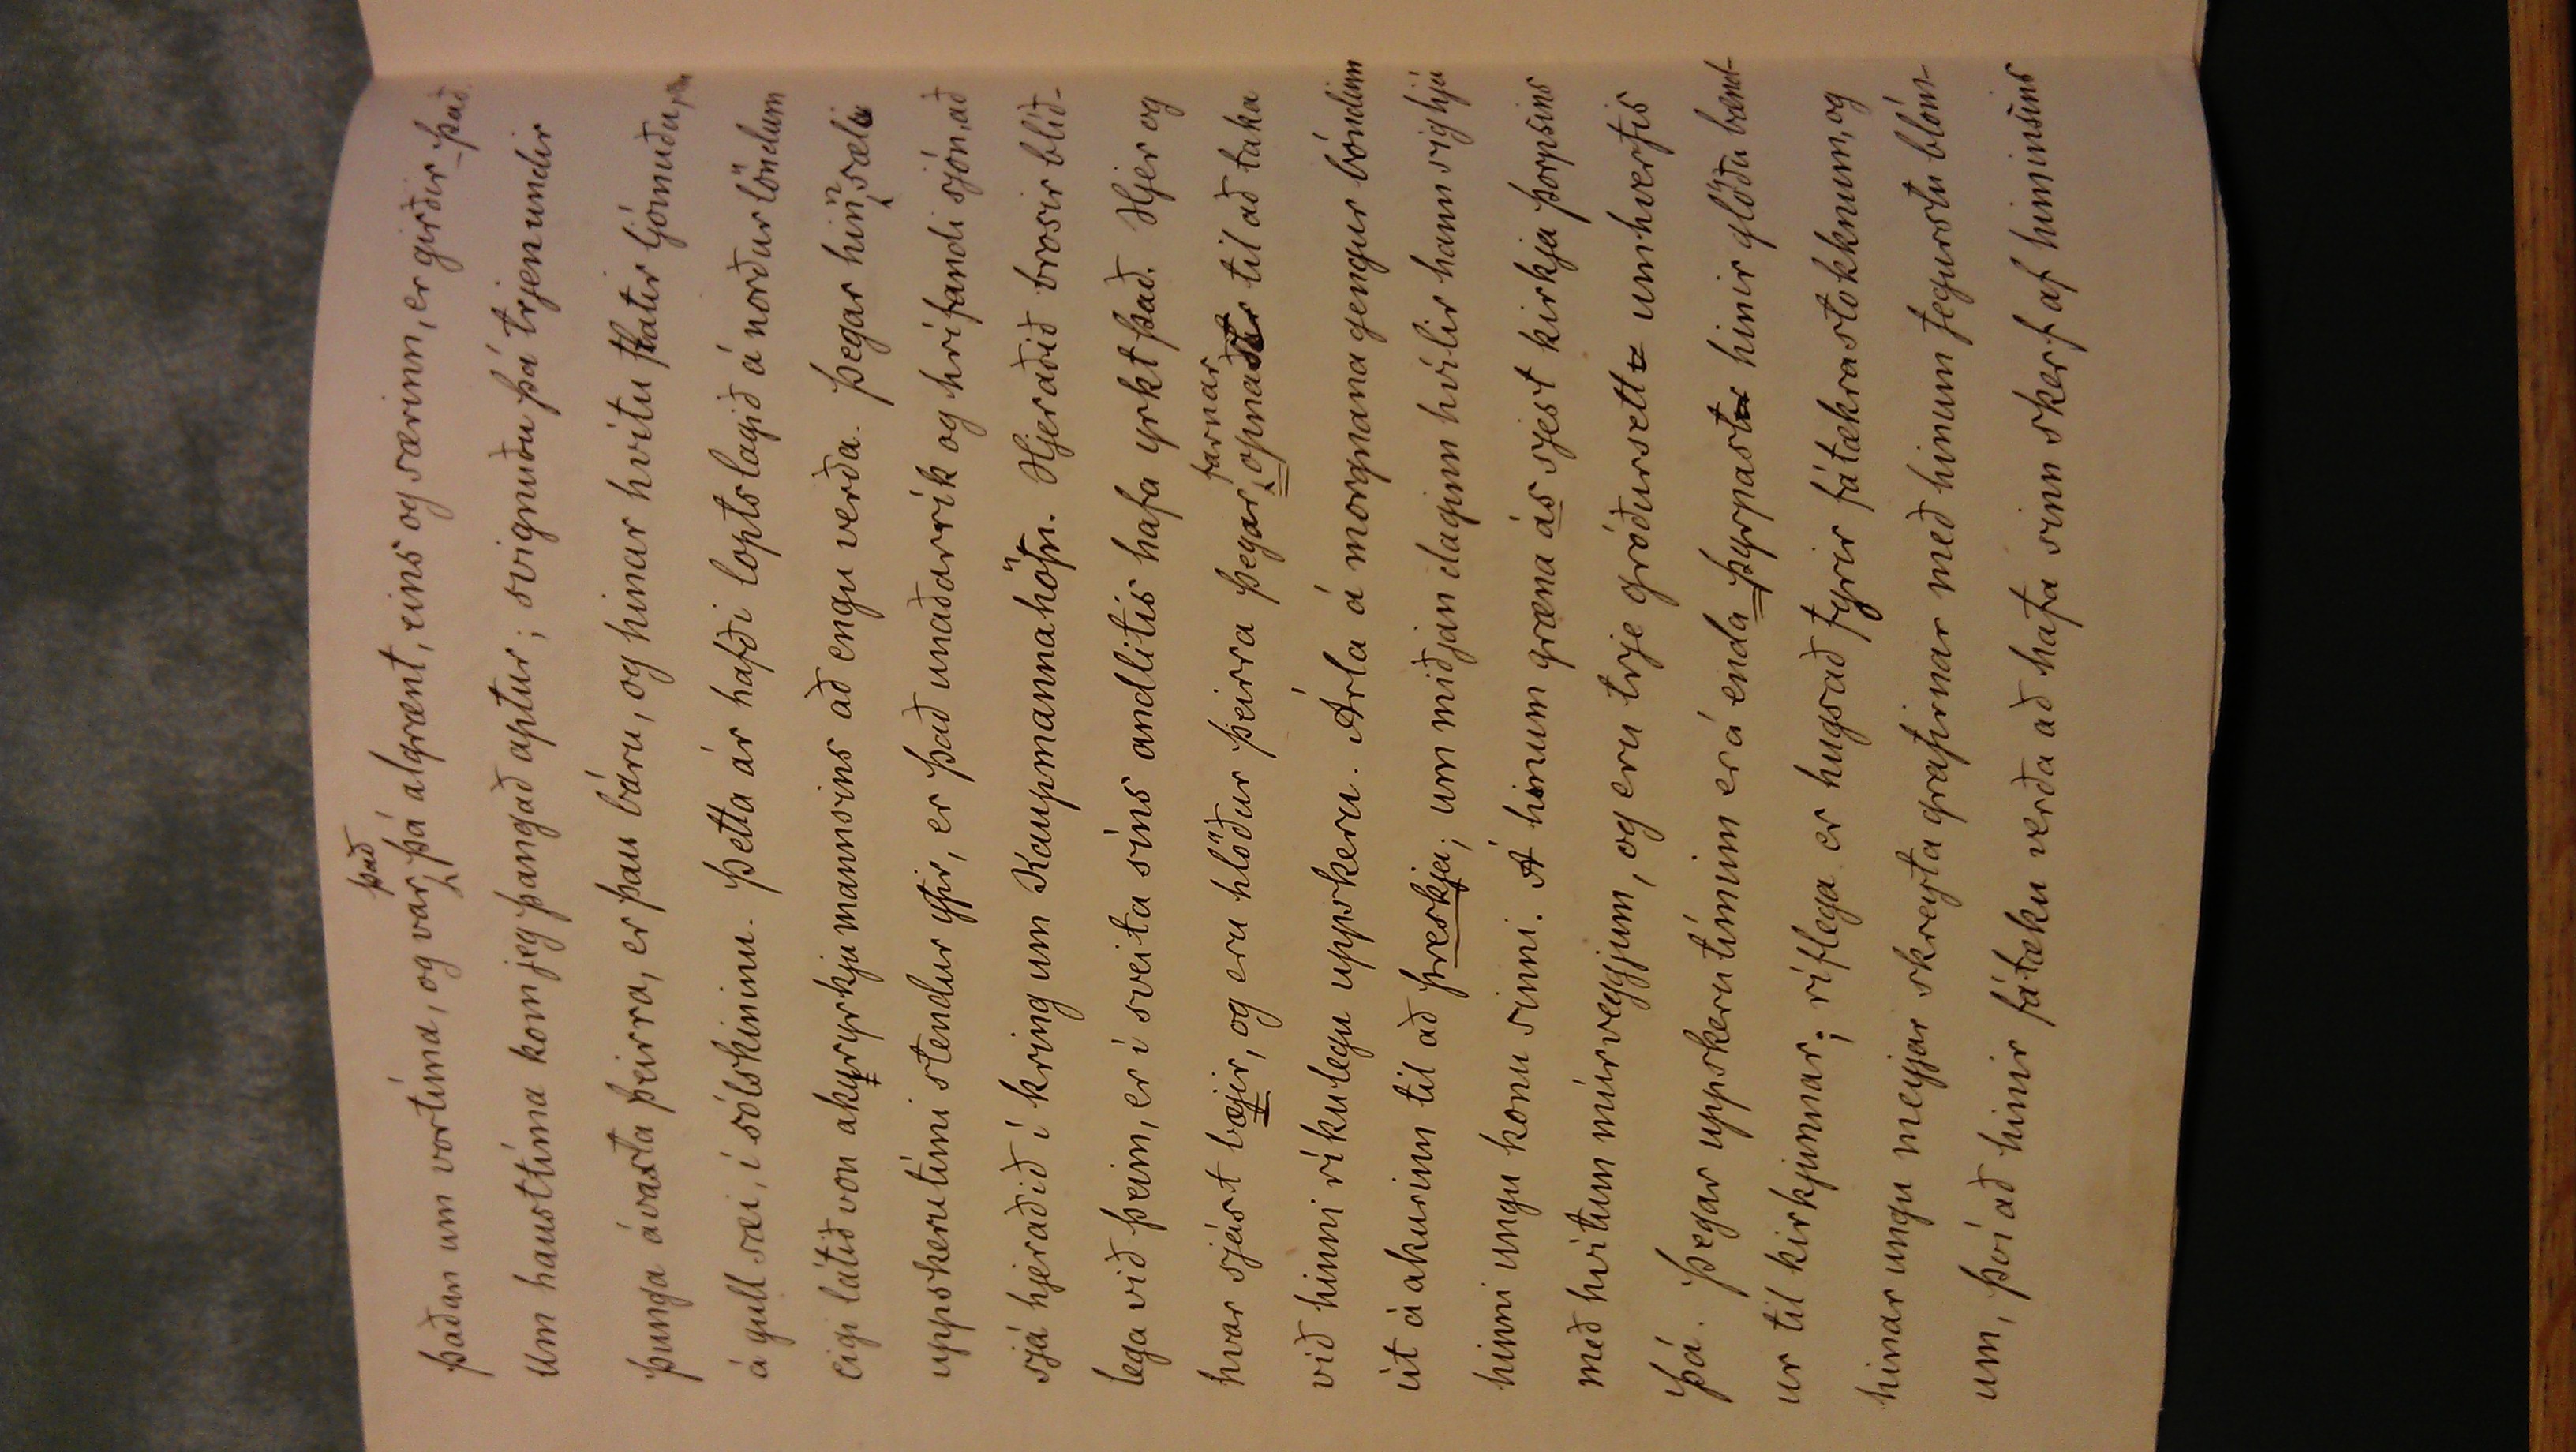 þaðan um vortíma, og var það þá algrænt, eins og særinn, er girðir það.
Um hausttíma kom jeg þangað aptur; svignuðu þá trjen undir
þunga ávaxta þeirra, er þau báru, og hinar hvítu flatir ljómuðu,
á gull sæi, í sólskininu. Þetta ár hafði loptslagið á norðurlöndum
eigi látið von akuryrkjumannsins að engu verða. Þegar hinn sæli
uppskerutími stendur yfir, er það unaðarrík og hrífandi sjón, að
sjá hjeraðið í kring um Kaupmannahöfn. Hjeraðið brosir blíð-
lega við þeim, er í sveita síns andlitis hafa yrkt það. Hjer og
hvar sjást bæjir, og eru hlöður þeirra þegar farnar opnast til að taka
við hinni ríkulegu uppskeru. Árla á morgnana gengur bóndinn
út á akurinn til að þreskja; um miðjan daginn hvílir hann sig hjá
hinni ungu konu sinni. Á hinum græna ás sjest kirkja þorpsins
með hvítum múrveggjum, og eru trje gróðursett umhverfis
þá. Þegar uppskerutíminn er á enda þyrpast hinir glöðu bænd-
ur til kirkjunnar; ríflega er hugsað fyrir fátækrastokknum, og
hinar ungu meyjar skreyta grafirnar með hinum fegurstu blóm-
um, því að hinir fátæku verða að hafa sinn skerf af himinsins